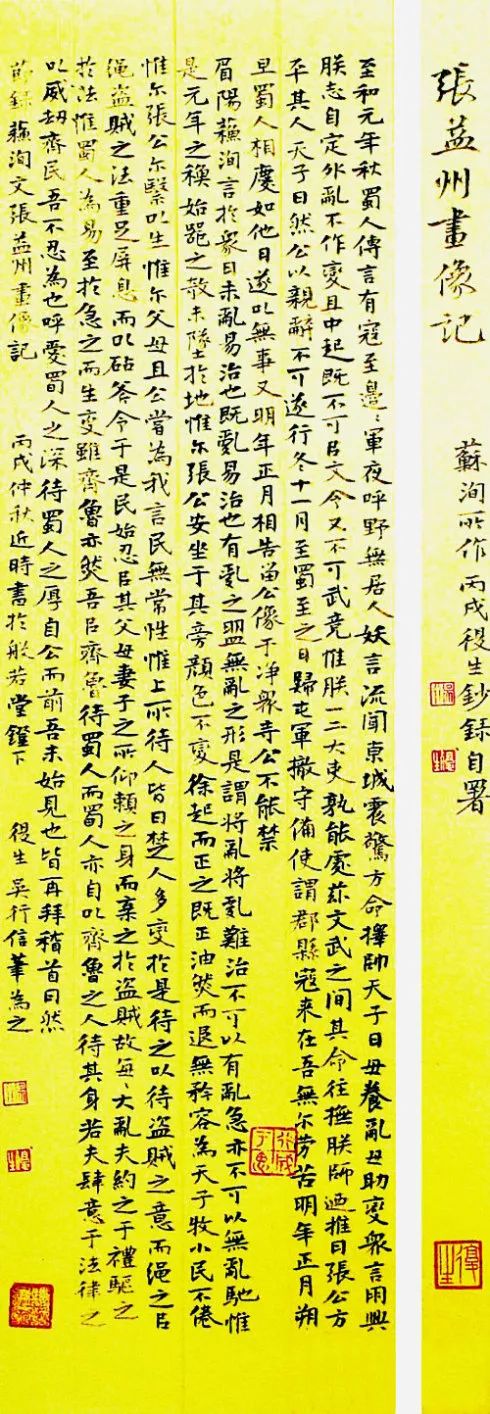 張益州畫像記
蘇洵所作 丙戌役生鈔錄自署
至和元年秋蜀人傳言有寇至邊〻軍夜呼野無居人妖言流聞東城震驚方命擇帥天子曰毋養亂毋助變衆言朋興
朕志自定外亂不作變且中起既不可㠯文令又不可武竞惟朕一二大吏孰能處茲文武之間其命往撫朕師迺推曰張公方
平其人天子曰然公以親辭不可遂行冬十一月至蜀至之日歸屯軍撤守備使謂郡縣寇来在吾無尔劳苦明年正月朔
旦蜀人相慶如他日遂以無事又明年正月相告畱公像于净衆寺公不能禁
眉陽蘇洵言於衆曰未亂易治也既亂易治也有亂之萌無亂之形是謂將亂將亂難治不可以有亂急亦不可以無亂馳惟
是元年之穠始器之敧未墜於地惟尔張公安坐于其旁顔色不變徐起而正之既正油然而退無矜容為天子牧小民不倦
惟尔張公尔繄以生惟尔父母且公嘗為我言民無常性惟上所待人皆曰楚人多變於是待之以待盜賊之意而绳之㠯
绳盜賊之法重足屏息而以砧斧令于是民始忍㠯其父母妻子之所仰賴之身而棄之於盜賊故每〻大亂夫約之于禮驅之
於法惟蜀人為易至於急之而生變雖齊魯亦然吾㠯齊魯待蜀人而蜀人亦自以齊魯之人待其身若夫肆意于法律之
以威劫齊民吾不忍為也呼愛蜀人之深待蜀人之厚自公而前吾未始見也皆再拜稽首曰然
節錄蘇洵文張益州畫像記 丙戌仲秋近時書於般若堂鐙下 役生吳行信筆為之